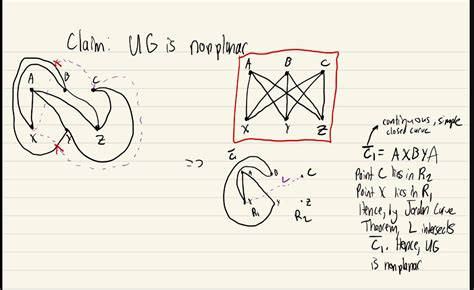 Claim: UG is nonplanar
A B C
X Z
A B C
X Y Z
continuous, simple
closed curve
=> C̄₁ = AXBYA
Point C lies in R₂
Point X lies in R₁
Hence, by Jordan Curve
Theorem, L intersects
C̄₁. Hence, UG
is nonplanar
L C
R₁ Z
R₂